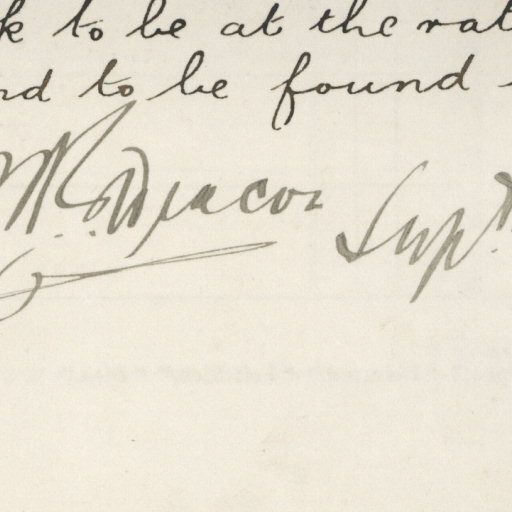 k to be at the rat
nd to be found
R. Deacon Supt.